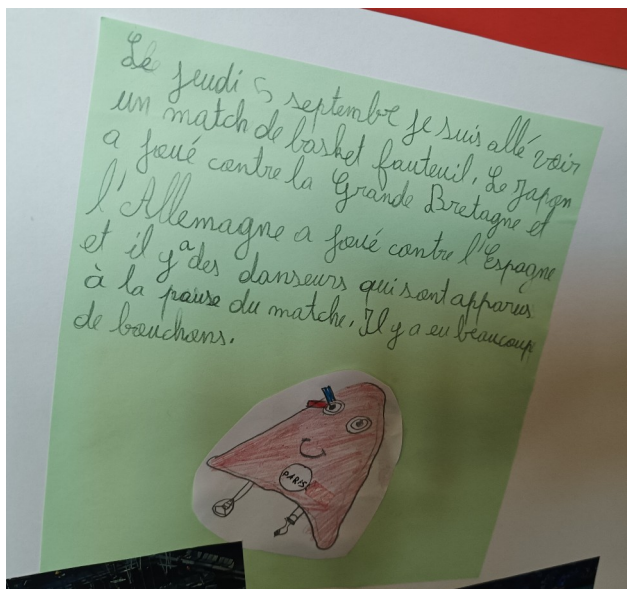 Le jeudi 5 septembre je suis allé voir
un match de basket fauteuil. Le Japon
a joué contre la Grande Bretagne et
l'Allemagne a joué contre l'Espagne
et il y a des danseurs qui sont apparus
à la pause du matche. Il y a eu beaucoup
de bouchons.
PARIS